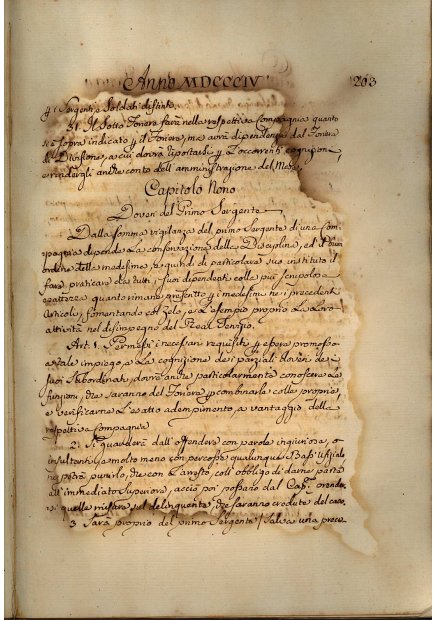 Anno MDCCCIV
203
pi Sergenti, e Soldati distinto
31. Il Sotto Foriere farà nella respettiva Compagnia quanto
si è sopra indicato p il Foriere, ma avrà dipendenza dal Foriere
di Divisione, a cui dovrà riportarsi p l'occorrenti cognizioni,
e rendergli anche conto dell'amministrazione del Mese.
Capitolo Nono
Doveri del Primo Sergente
Dalla somma vigilanza del primo Sergente di una Com-
pagnia dipende la conservazione della Disciplina, ed il buon
ordine della medesima, e quindi di particolare suo instituto il
fare praticare da tutti i suoi dipendenti colla più scrupolosa
esattezza quanto rimane prescritto p i medesimi ne i precedenti
Articoli, fomentando col Zelo, e l'esempio proprio la loro
attività nel disimpegno del Real Servizio.
Art. 1. Permessi i necessari requisiti p essere promosso
a tale impiego, e la cognizione dei i parziali doveri de i
suoi Subordinati, dovrà anche particolarmente conoscere le
funzioni, che saranno del Foriere p combinarle colle proprie,
e verificarne l'esatto adempimento, a vantaggio della
respettiva Compagnia
2. Si guarderà dall'offendere con parole ingiuriose, o
insultanti, e molto meno con percosse qualunque Bass'uffiziale
ne potrà punirlo, che con l'arresto, coll'obbligo di darne parte
all'immediato Superiore, acciò poi possano dal Cap.º prender-
si quelle misure sul delinquente che saranno credute del caso.
3. Sarà proprio del primo Sergente / salva una prece-